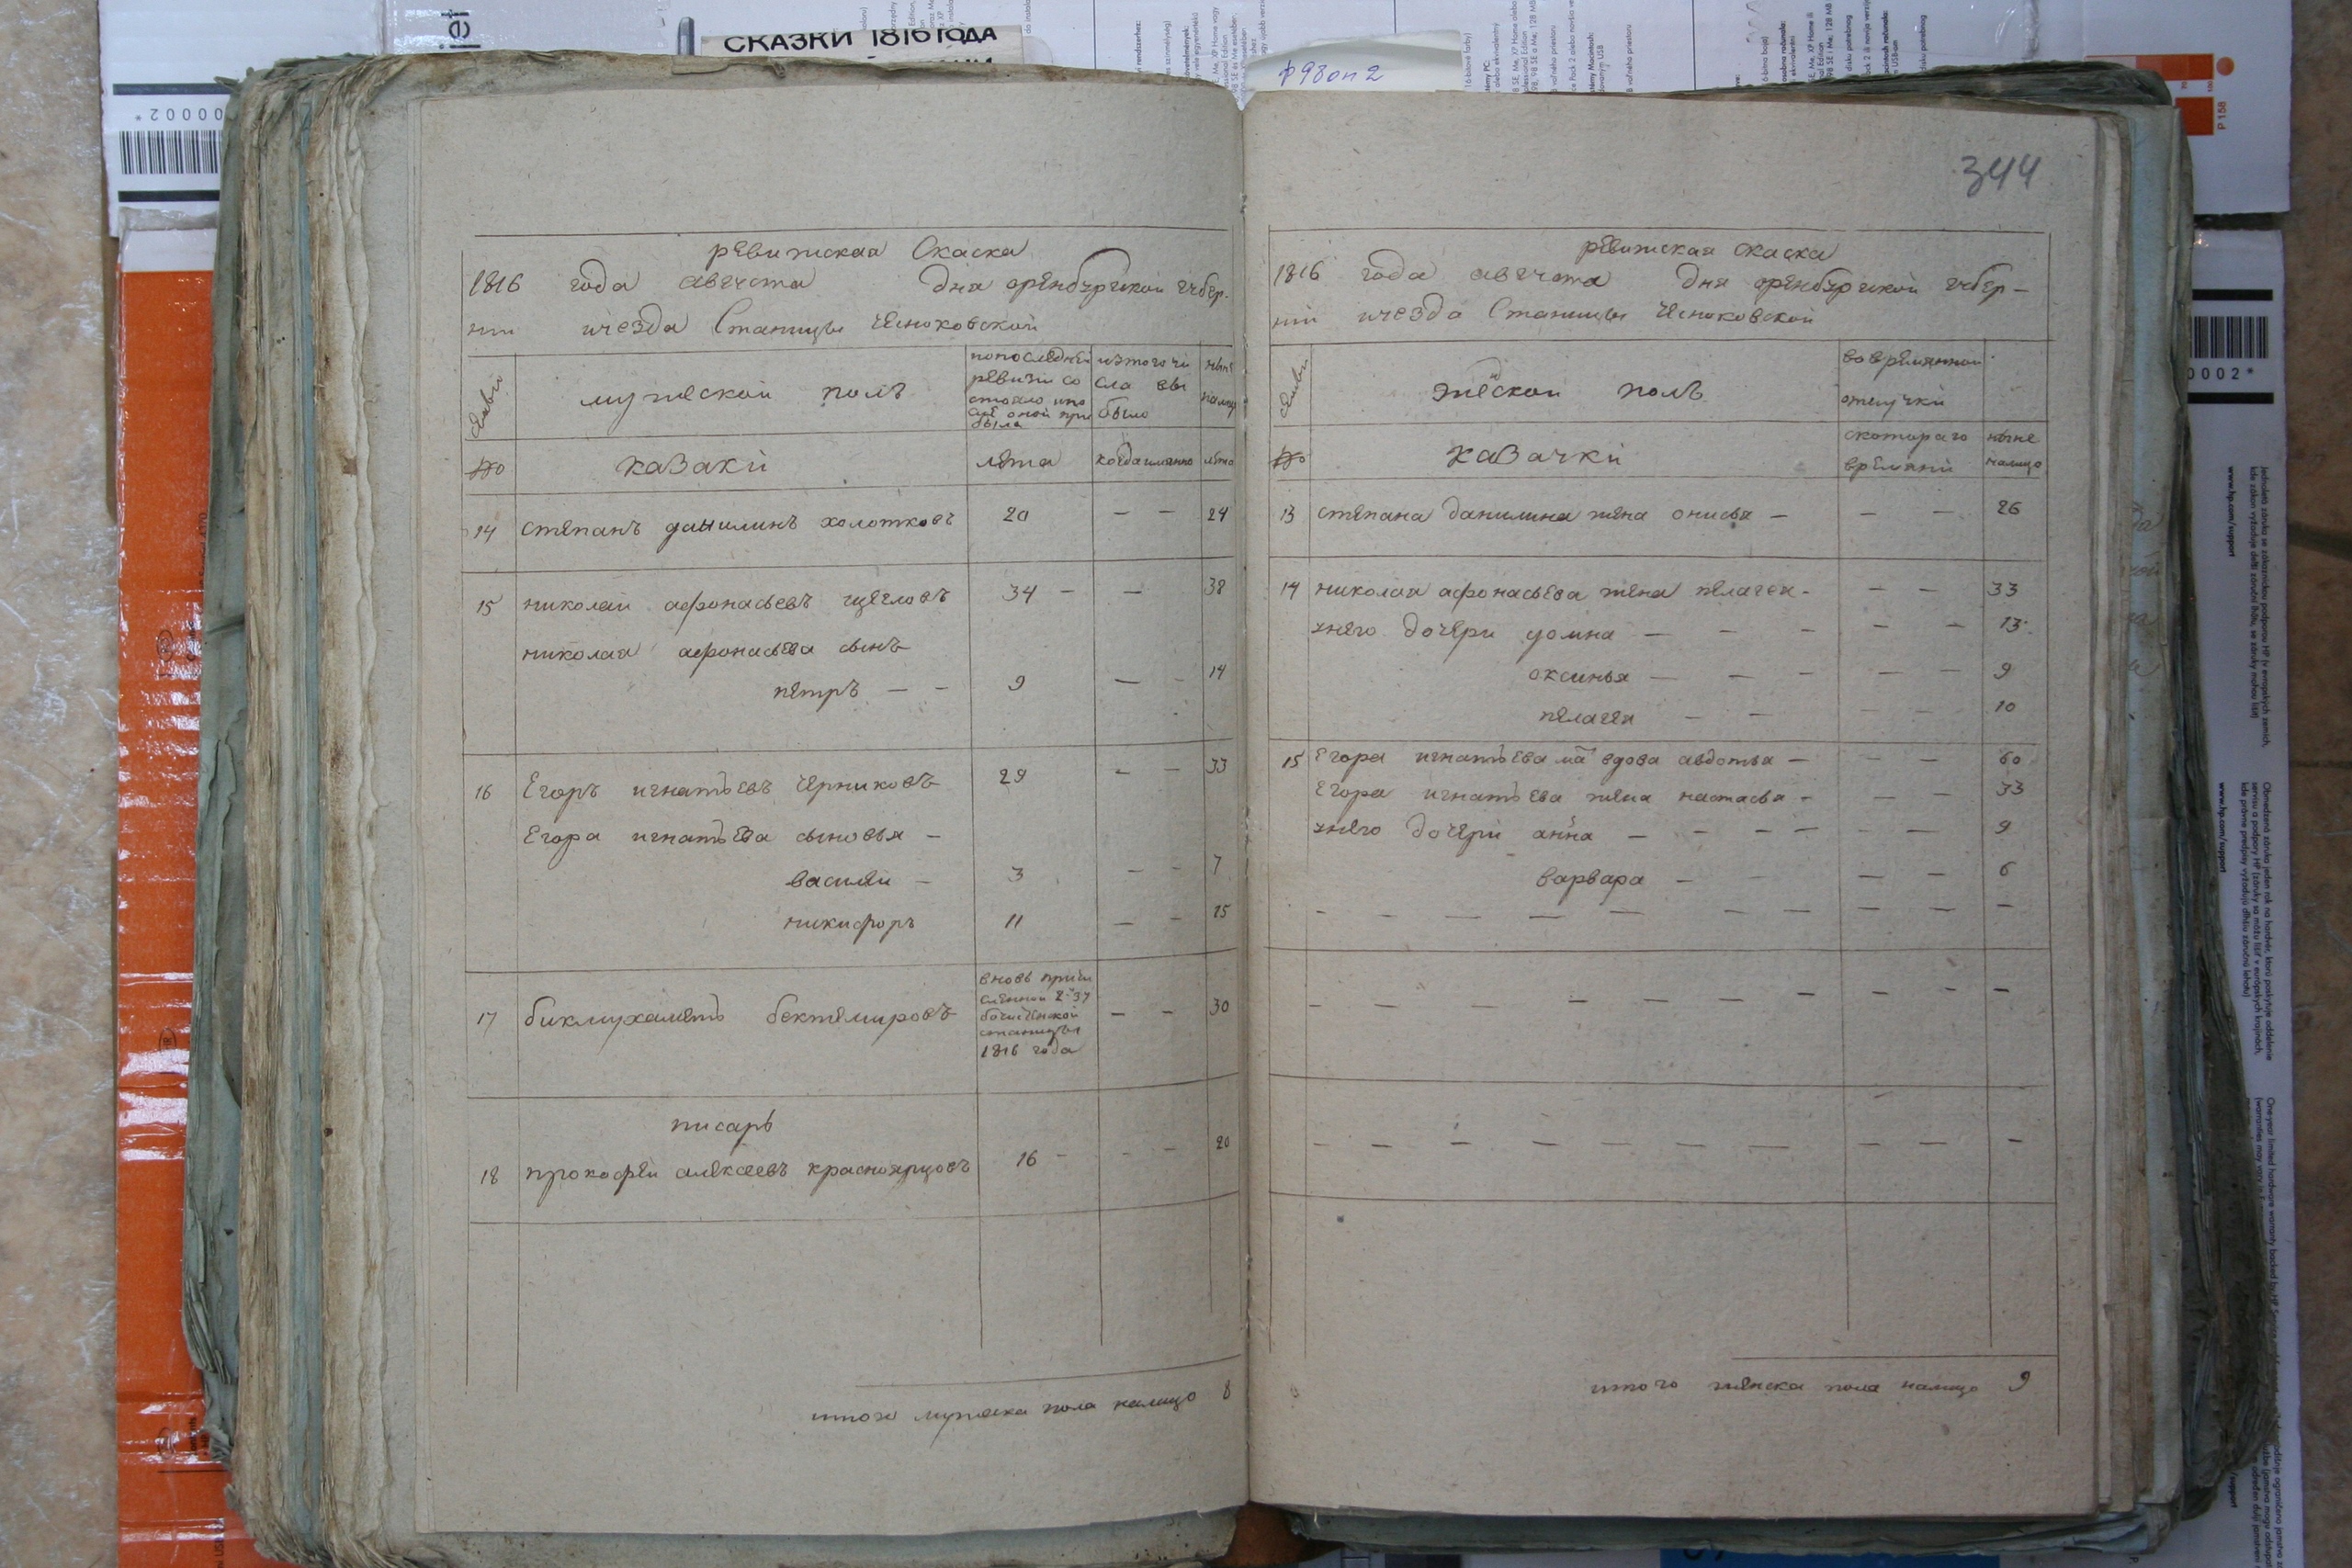 СКАЗКИ 1816 ГОДА
ф 98 оп 2
344
ревижская Скаска
1816 года августа дня оренбургской губер-
нии уезда Станицы Чесноковской
семьи
мужеской полъ
по последней ревизи состояло и после оной прибыло
из того числа выбыло
ныне налицо
№
казаки
лета
когда имянно
лета
14 степанъ данилинъ холотковъ 20 — — 24
15 николай афонасьевъ щегловъ 34 — — 38
николая афонасьева сынъ
петръ — — 9 — - 14
16 Егоръ игнатьевъ Черниковъ 29 - — 33
Егора игнатьева сыновья —
василей — 3 — - 7
никифоръ 11 — - 15
17 бикмухаметь бектемировъ
вновь причи
сленной
станицы
1816 года
— — 30
писарь
18 прокофей алексеевъ красноярцовъ 16 - - — 20
итого мужеска пола налицо 8
ревижская скаска
1816 года августа дня оренбургской губер-
нии уезда Станицы Чесноковской
семьи
женской полъ
во времянной
отлучки
№
казачки
скотораго
времяни
ныне
налицо
13 степана данилина жена онисья — — — 26
14 николая афонасьева жена пелагея - — — 33
унего дочери домна — — — — — 13
оксинья — — — — — 9
пелагея — — — — 10
15 Егора игнатьева ма вдова авдотья — — — 60
Егора игнатьева жена настасья - — — 33
унего дочери анна — — — — — — 9
варвара — — — — 6
итого женска пола налицо 9